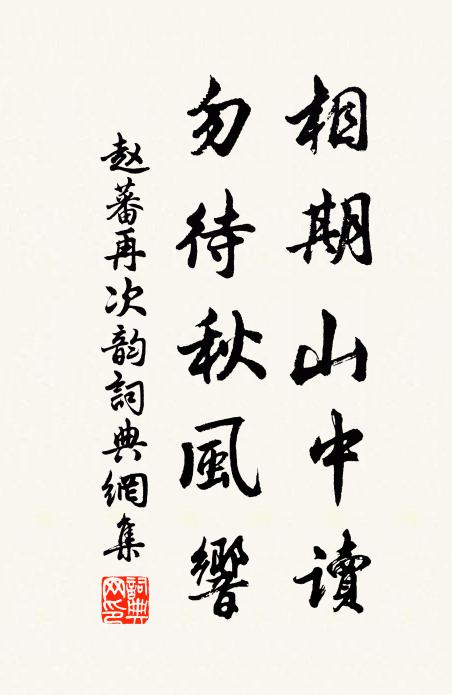 相期山中讀
勿待秋風響
赵蕃再次韵詞典網集
詞典網印